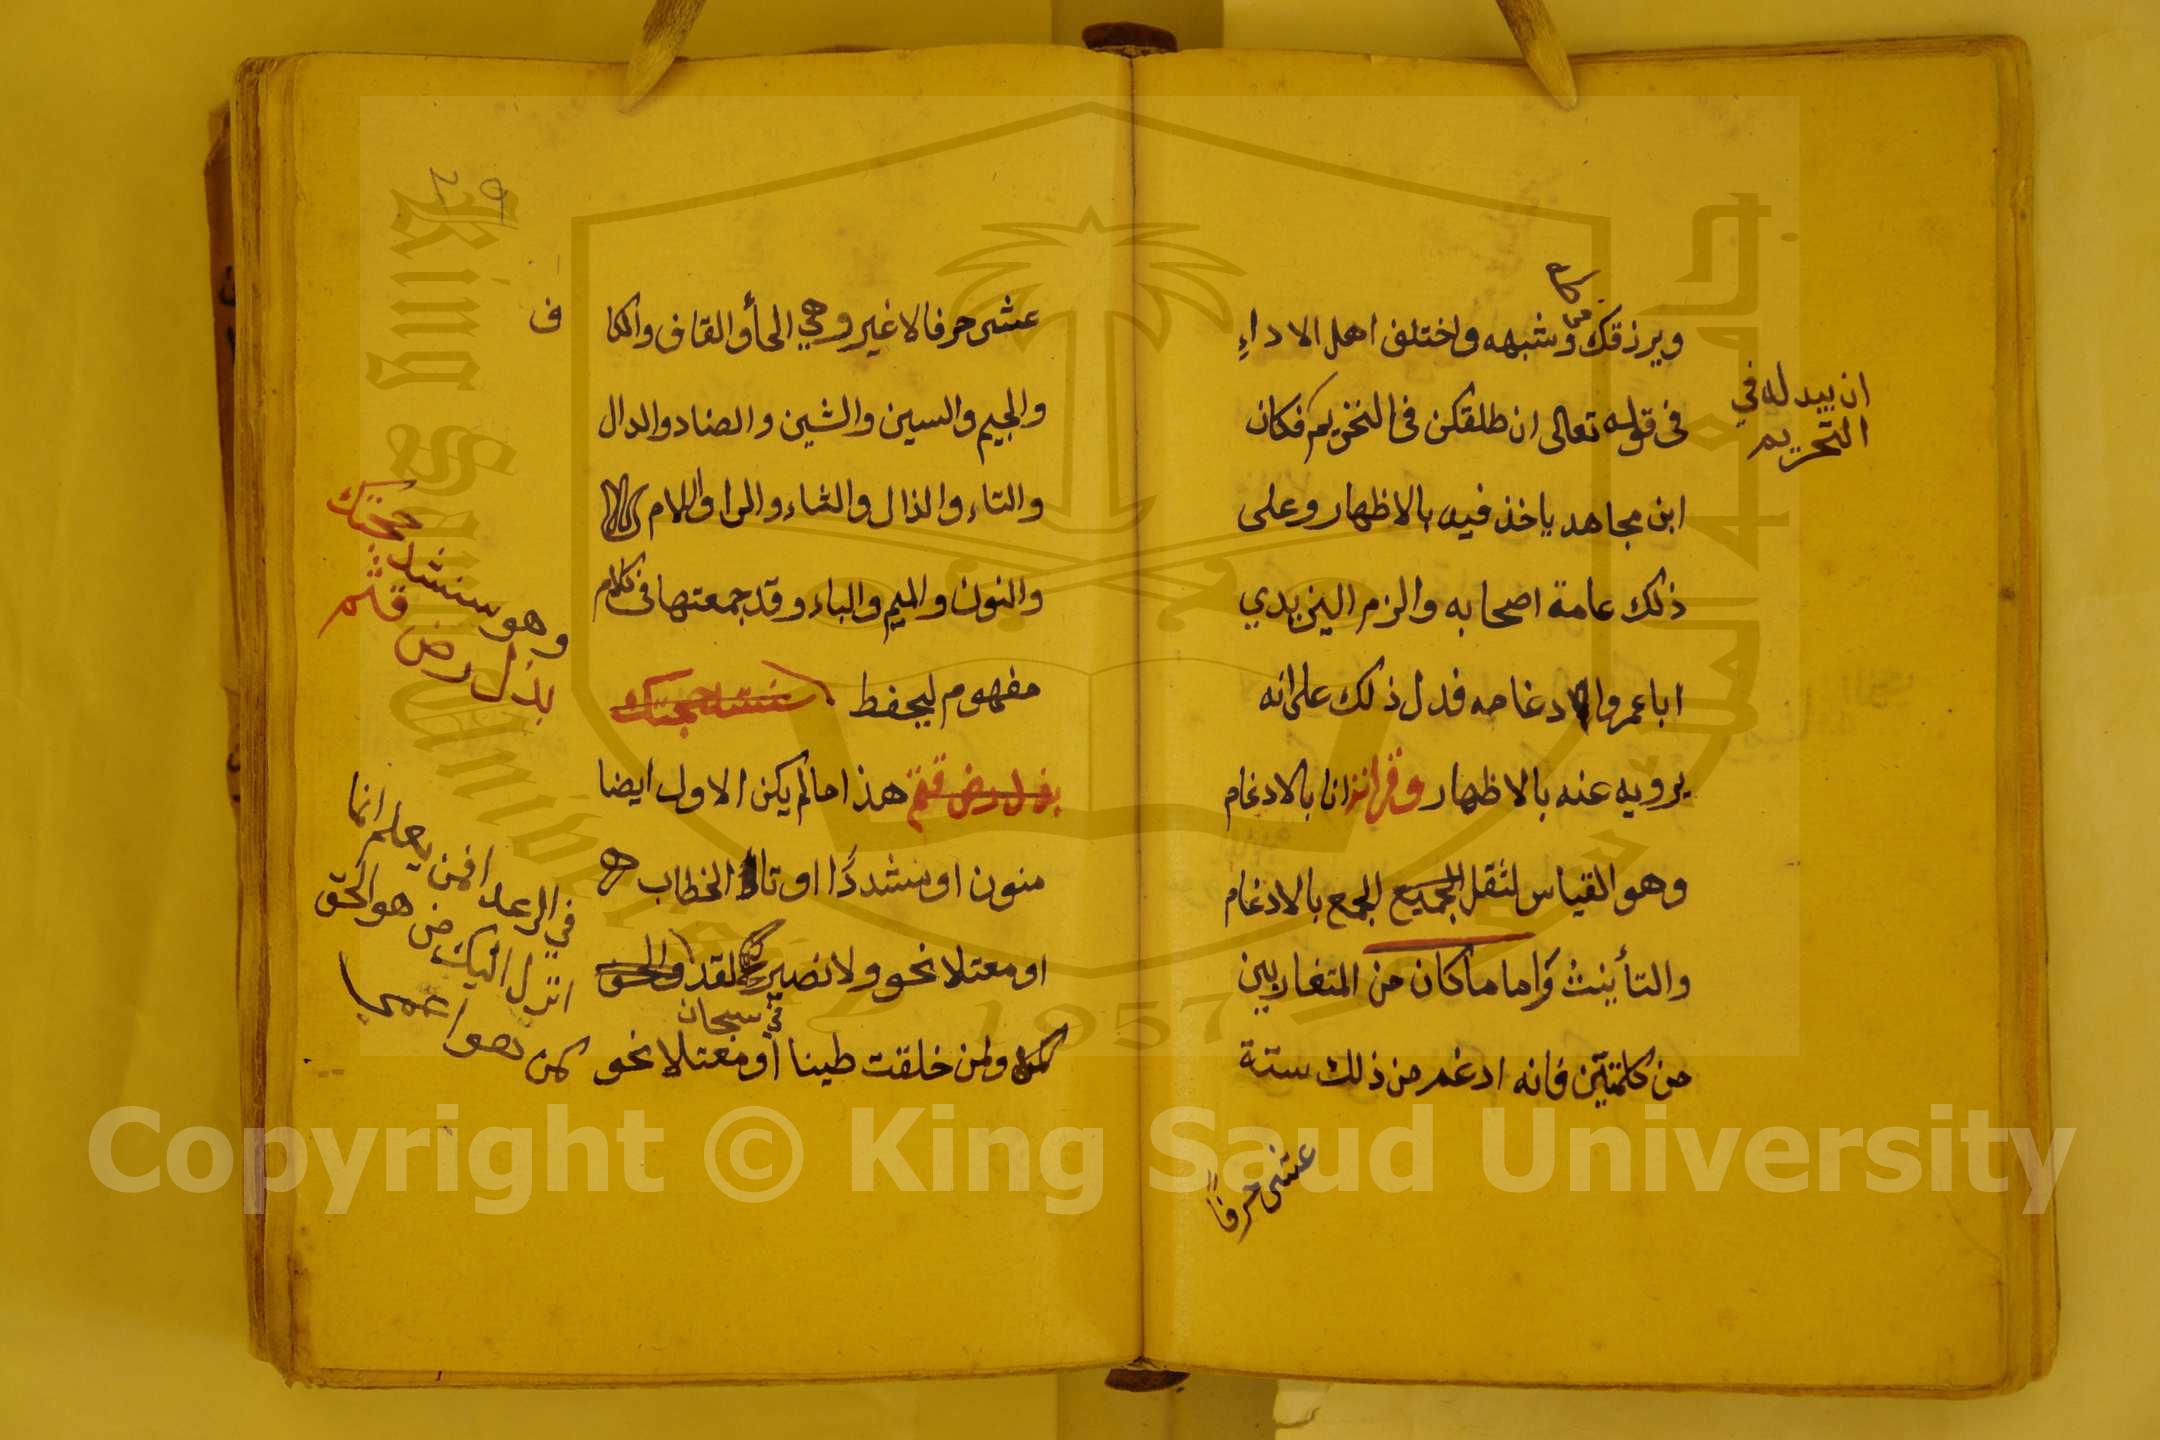 ويرزقكم وشبهه واختلف اهل الاداء
في قوله تعالى ان طلقكن في التحريم فكان
ابن مجاهد ياخذ فيه بالاظهار وعلى
ذلك عامة اصحابه والزم اليزيدي
اباعمرو ادغامه فدل ذلك على انه
يرويه عنه بالاظهار وقراته انا بالادغام
وهو القياس لثقل الجميع الجمع بالادغام
والتأنيث وَاما ما كان من المتقاربين
من كلمتين فانه ادغم من ذلك ستة
عشر حرفاً
ان يبدله في
التحريم
عشر حرفا لا غير وهي الحأ والقاف والكا
ف
والجيم والسين والشين والضاد والدال
والتاء والذال والثاء والرا واللام
والنون والميم والباء وقد جمعتها في كلام
مفهوم ليحفظ سنشد حجتك
بذل رض قثم هذا مالم يكن الاول ايضا
منون او مشددًا او تاء الخطاب
او معتلا نحو ولا نصير لقد والحق
في سبحان
كمن ولمن خلقت طينا أو معتلا نحو
وهو سنشد حجتك
بذل رض قثم
في الرعد افمن يعلم انما
انزل اليك من هو الحق
كمن هو اعمى
٢٩
Copyright © King Saud University
King Saud University
جامعة الملك سعود
1957